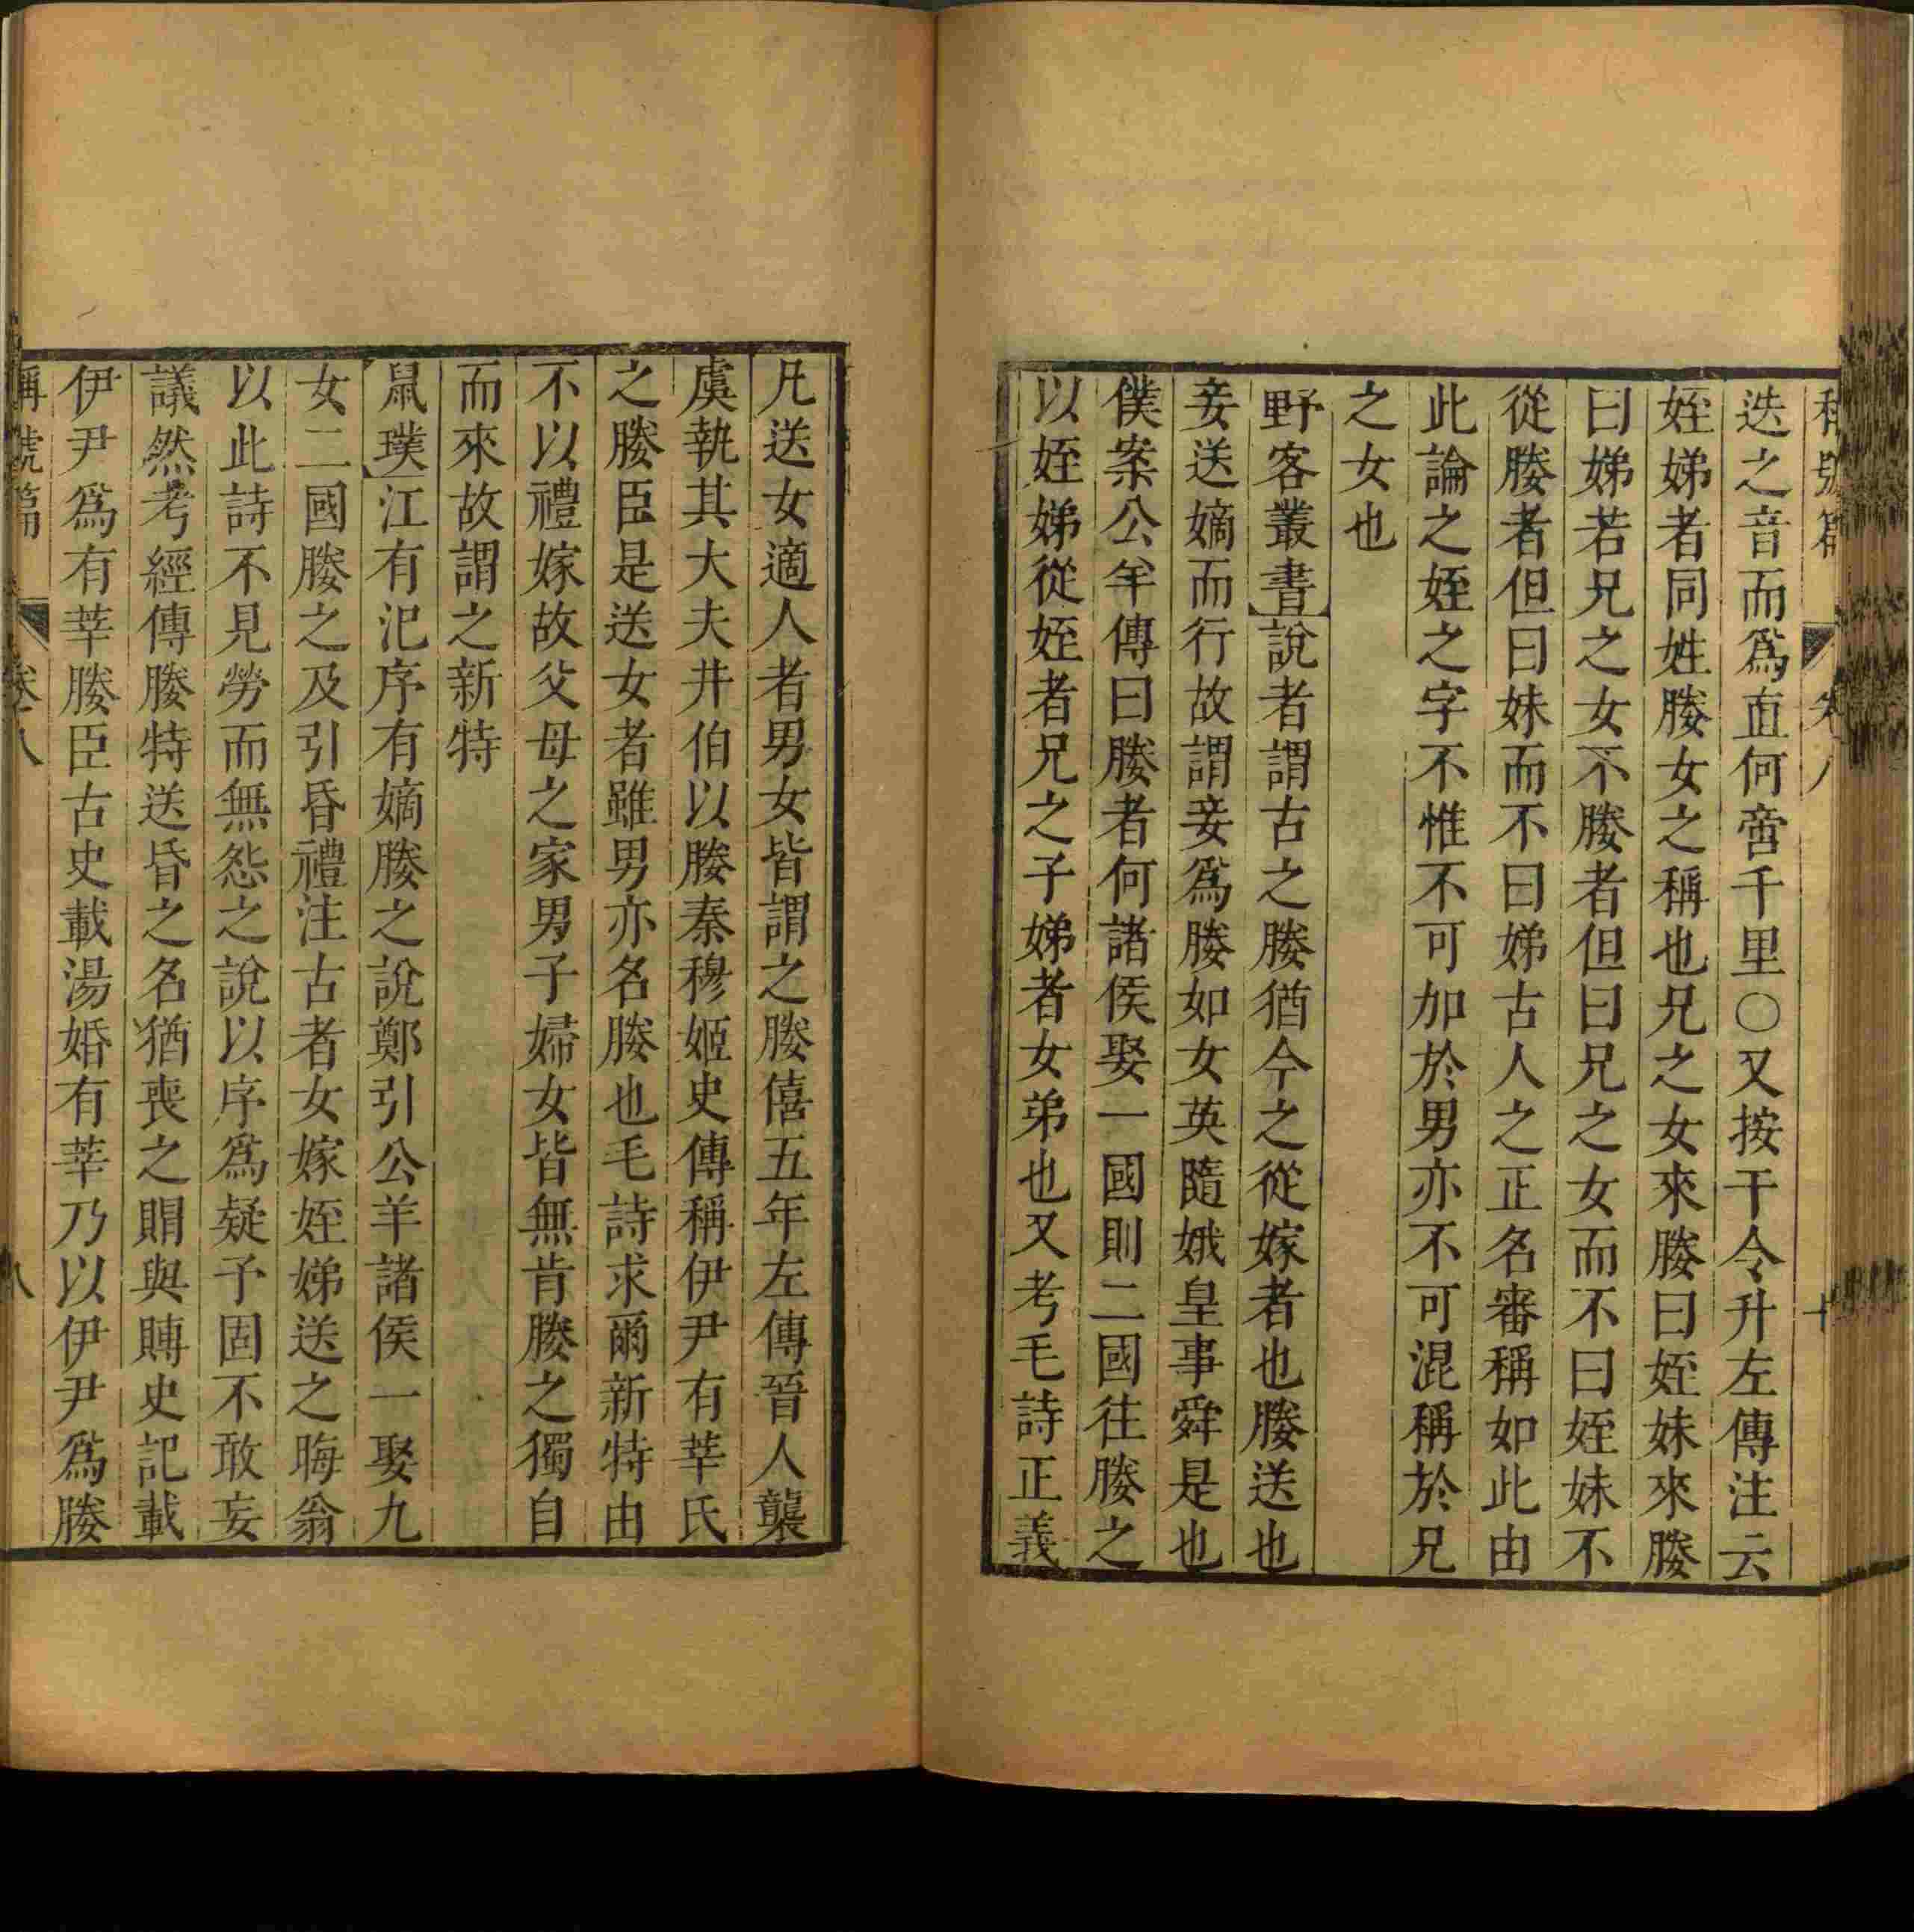 迭之音而爲直何啻千里○又按干令升左傳注云
姪娣者同姓媵女之稱也兄之女來媵曰姪妹來媵
曰娣若兄之女不媵者但曰兄之女而不曰姪妹不
從媵者但曰妹而不曰娣古人之正名審稱如此由
此論之姪之字不惟不可加於男亦不可混稱於兄
之女也
野客叢書說者謂古之媵猶今之從嫁者也媵送也
妾送嫡而行故謂妾爲媵如女英隨娥皇事舜是也
僕案公羊傳曰媵者何諸侯娶一國則二國往媵之
以姪娣從姪者兄之子娣者女弟也又考毛詩正義
凡送女適人者男女皆謂之媵僖五年左傳晉人襲
虞執其大夫井伯以媵秦穆姬史傳稱伊尹有莘氏
之媵臣是送女者雖男亦名媵也毛詩求爾新特由
不以禮嫁故父母之家男子婦女皆無肯媵之獨自
而來故謂之新特
鼠璞江有汜序有嫡媵之說鄭引公羊諸侯一娶九
女二國媵之及引昏禮注古者女嫁姪娣送之晦翁
以此詩不見勞而無怨之說以序爲疑予固不敢妄
議然考經傳媵特送昏之名猶喪之賵與賻史記載
伊尹爲有莘媵臣古史載湯婚有莘乃以伊尹爲媵
稱號篇 卷八